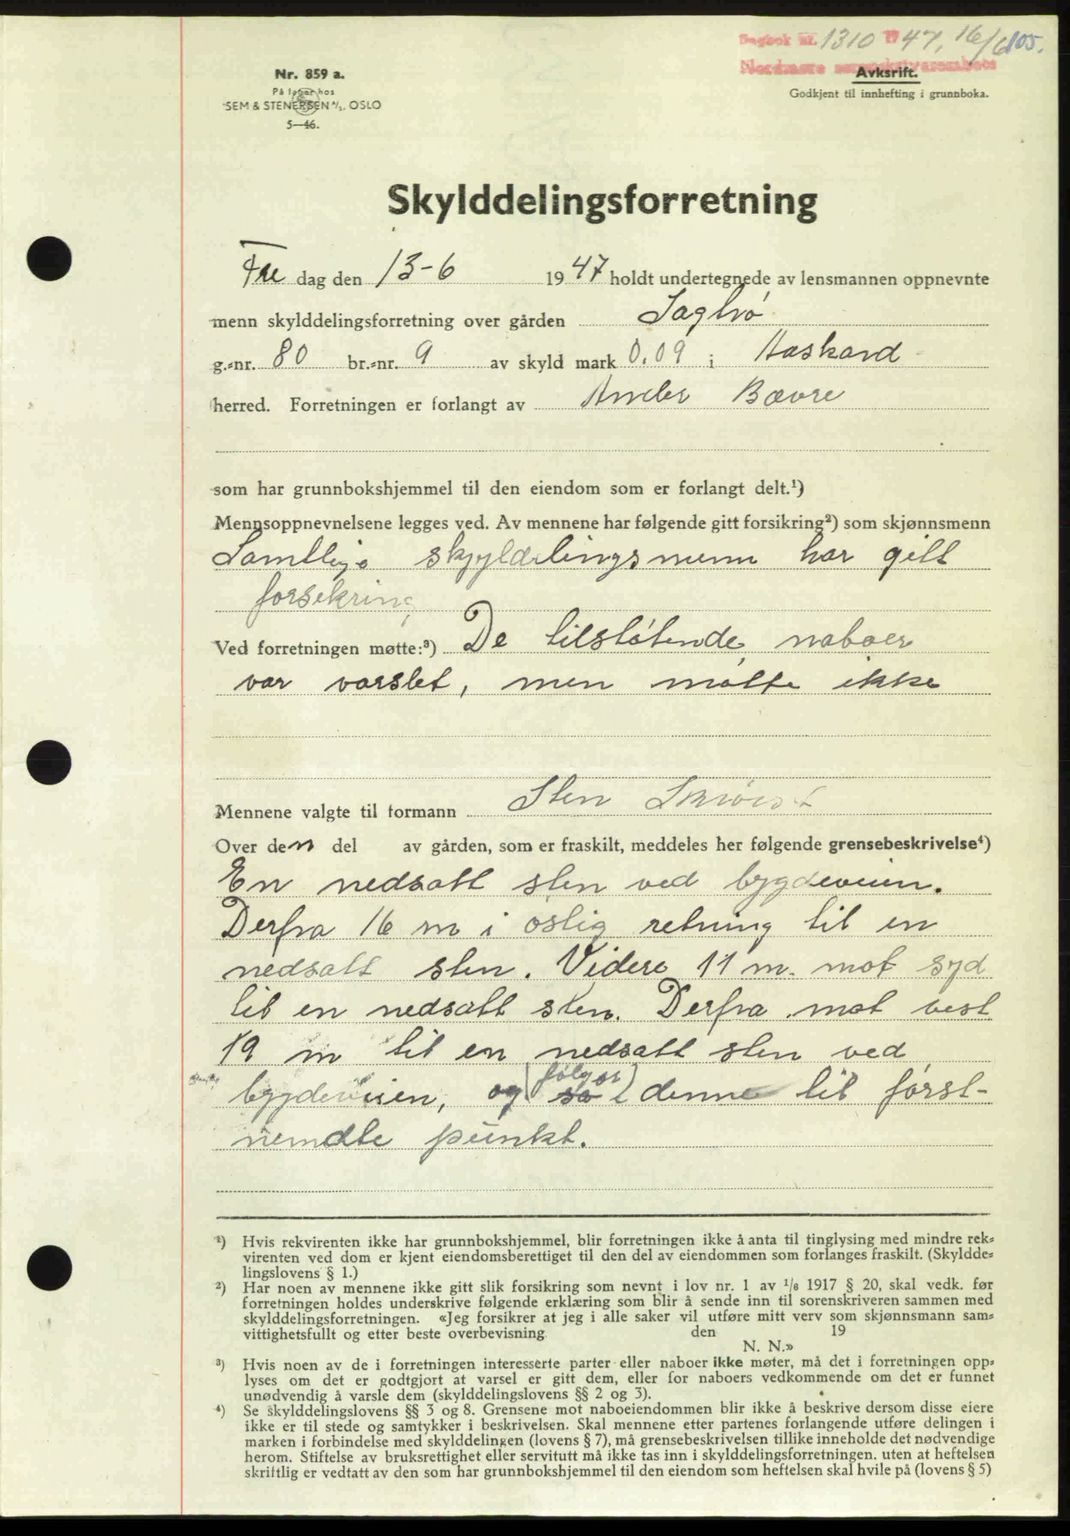 Dagbok nr. 1310 1947, 16/6 105.
Nordmøre sorenskriverembete
Nr. 859 a.
På lager hos
SEM & STENERSEN A/S, OSLO
5—46.
Avkskrift.
Godkjent til innhefting i grunnboka.
Skylddelingsforretning
Fre dag den 13-6 1947 holdt undertegnede av lensmannen oppnevnte
menn skylddelingsforretning over gården Sagbrø
g.-nr. 80 br.-nr. 9 av skyld mark 0.09 i Aaskard
herred. Forretningen er forlangt av Anders Bævre
som har grunnbokshjemmel til den eiendom som er forlangt delt.¹)
Mennsoppnevnelsene legges ved. Av mennene har følgende gitt forsikring²) som skjønnsmenn
Samtlige skylddelingsmenn har gitt
forsikring
Ved forretningen møtte:³) De tilstøtende naboer
var varslet, men møtte ikke
Mennene valgte til formann Sten
Over den del av gården, som er fraskilt, meddeles her følgende grensebeskrivelse⁴)
En nedsatt sten ved bygdeveien.
Derfra 16 m i østlig retning til en
nedsatt sten. Videre 11 m. mot syd
til en nedsatt sten. Derfra mot vest
19 m til en nedsatt sten ved
bygdeveien, og (følger) så denne til først-
nemdte punkt.
¹) Hvis rekvirenten ikke har grunnbokshjemmel, blir forretningen ikke å anta til tinglysing med mindre rek-
virenten ved dom er kjent eiendomsberettiget til den del av eiendommen som forlanges fraskilt. (Skyldde-
lingslovens § 1.)
²) Har noen av mennene ikke gitt slik forsikring som nevnt i lov nr. 1 av 1/6 1917 § 20, skal vedk. før
forretningen holdes underskrive følgende erklæring som blir å sende inn til sorenskriveren sammen med
skylddelingsforretningen. «Jeg forsikrer at jeg i alle saker vil utføre mitt verv som skjønnsmann sam-
vittighetsfullt og etter beste overbevisning den 19
N. N.»
³) Hvis noen av de i forretningen interesserte parter eller naboer ikke møter, må det i forretningen opp-
lyses om det er godtgjort at varsel er gitt dem, eller for naboers vedkommende om det er funnet
unødvendig å varsle dem (skylddelingslovens §§ 2 og 3).
⁴) Se skylddelingslovens §§ 3 og 8. Grensene mot naboeiendommen blir ikke å beskrive dersom disse eiere
ikke er til stede og samtykker i beskrivelsen. Skal mennene etter partenes forlangende utføre delingen i
marken i forbindelse med skylddelingen (lovens § 7), må grensebeskrivelsen tillike inneholde det nødvendige
herom. Stiftelse av bruksrettighet eller servitutt må ikke tas inn i skylddelingsforretningen. uten at heftelsen
skriftlig er vedtatt av den som har grunnbokshjemmel til den eiendom som heftelsen skal hvile på (lovens § 5)